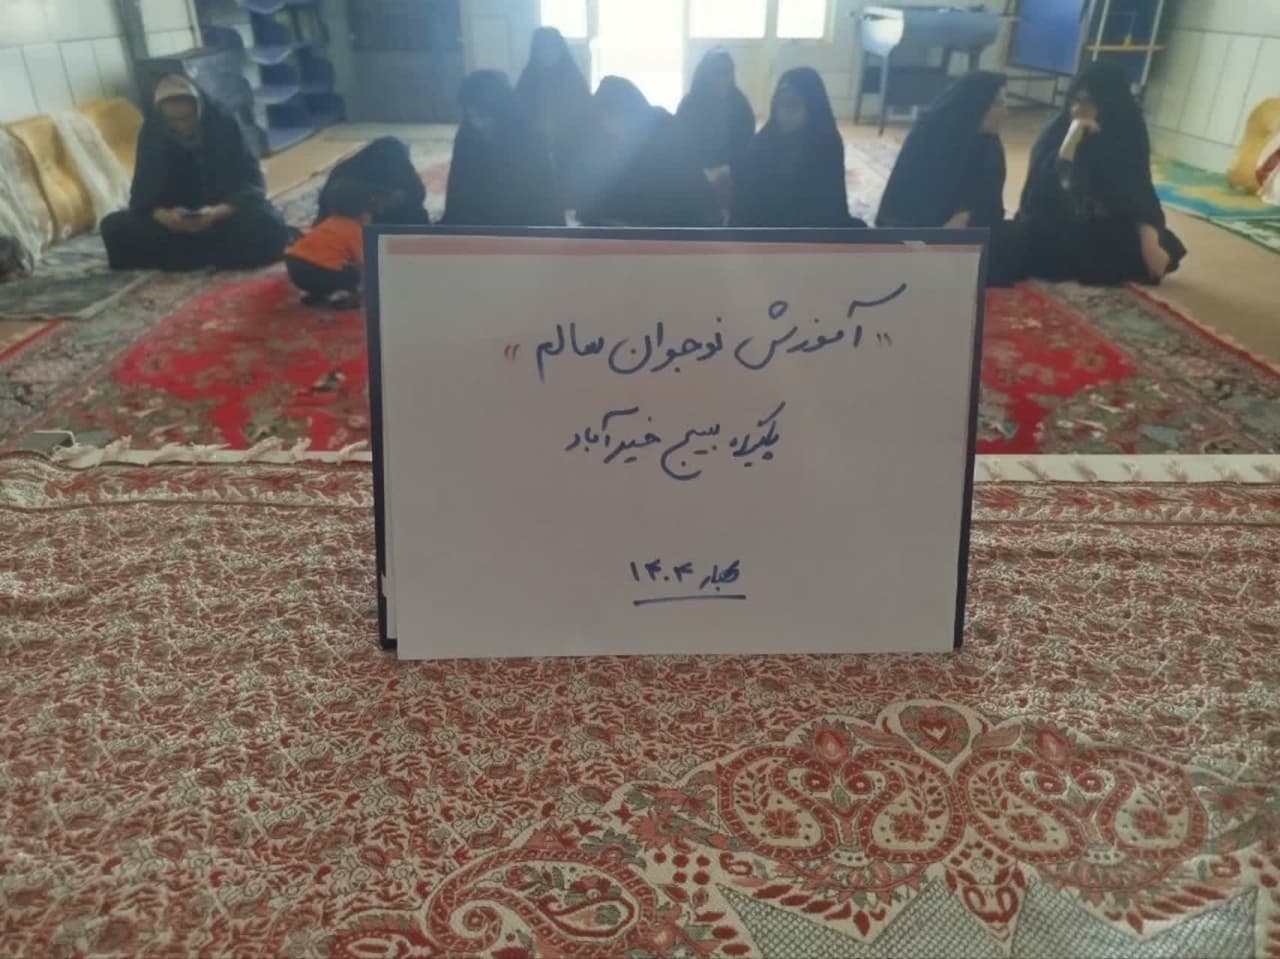 "آموزش نوجوان سالم"
پایگاه بسیج خیرآباد
بهار ۱۴۰۴